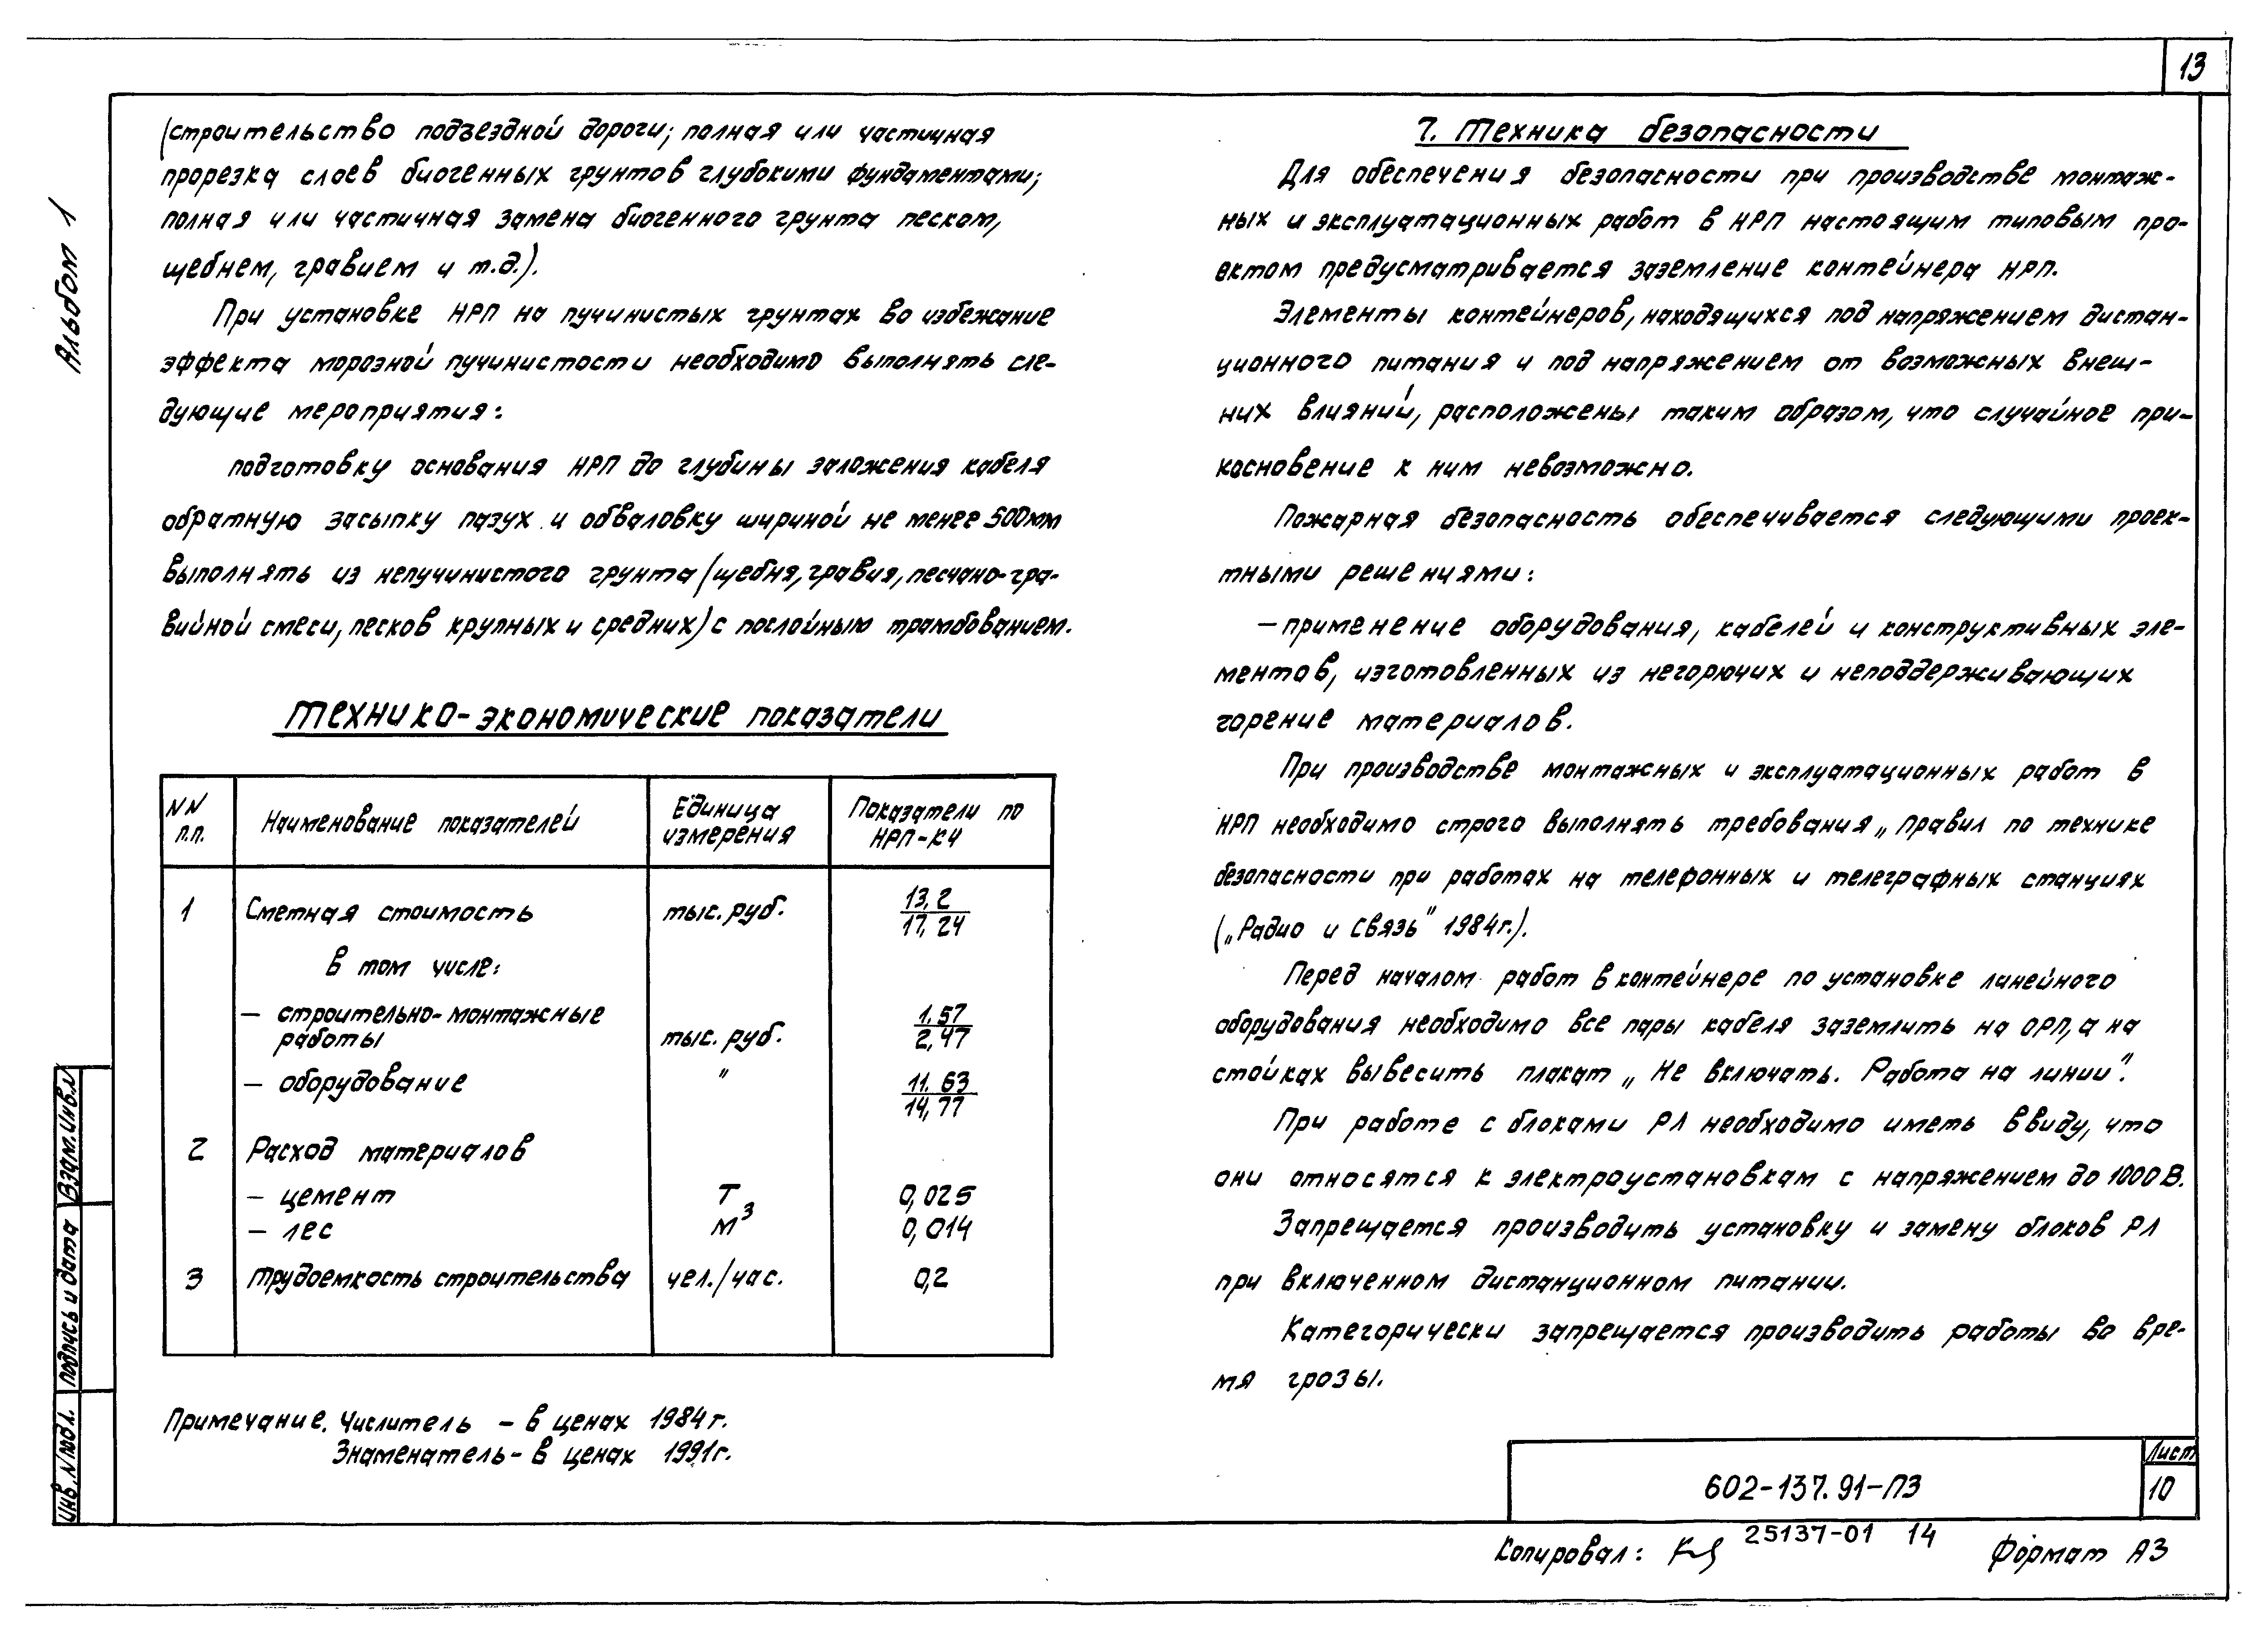 13
Альбом 1
(строительство подъездной дороги; полная или частичная
прорезка слоев биогенных грунтов глубокими фундаментами;
полная или частичная замена биогенного грунта песком,
щебнем, гравием и т.д.).
При установке НРП на пучинистых грунтах во избежание
эффекта морозной пучинистости необходимо выполнять сле-
дующие мероприятия:
подготовку основания НРП до глубины заложения кабеля
обратную засыпку пазух и обваловку шириной не менее 500мм
выполнять из непучинистого грунта (щебня, гравия, песчано-гра-
вийной смеси, песков крупных и средних) с послойным трамбованием.
Технико-экономические показатели
NN п.п. Наименование показателей Единица измерения Показатели по НРП-К4
1 Сметная стоимость тыс. руб. 13,2 / 17,24
в том числе:
– строительно-монтажные
работы тыс. руб. 1.57 / 2,47
– оборудование " 11.63 / 14,77
2 Расход материалов
– цемент Т 0,025
– лес м³ 0,014
3 Трудоемкость строительства чел./час. 0,2
Примечание. Числитель – в ценах 1984г.
Знаменатель – в ценах 1991г.
7. Техника безопасности
Для обеспечения безопасности при производстве монтаж-
ных и эксплуатационных работ в НРП настоящим типовым про-
ектом предусматривается заземление контейнера НРП.
Элементы контейнеров, находящихся под напряжением дистан-
ционного питания и под напряжением от возможных внеш-
них влияний, расположены таким образом, что случайное при-
косновение к ним невозможно.
Пожарная безопасность обеспечивается следующими проек-
тными решениями:
– применение оборудования, кабелей и конструктивных эле-
ментов, изготовленных из негорючих и неподдерживающих
горение материалов.
При производстве монтажных и эксплуатационных работ в
НРП необходимо строго выполнять требования „Правил по технике
безопасности при работах на телефонных и телеграфных станциях
(„Радио и связь" 1984г.).
Перед началом работ в контейнере по установке линейного
оборудования необходимо все пары кабеля заземлить на ОРП, а на
стойках вывесить плакат „Не включать. Работа на линии".
При работе с блоками РЛ необходимо иметь ввиду, что
они относятся к электроустановкам с напряжением до 1000 В.
Запрещается производить установку и замену блоков РЛ
при включенном дистанционном питании.
Категорически запрещается производить работы во вре-
мя грозы.
Инв. N подл. Подпись и дата Взам.инв.N
602-137.91-ПЗ
Лист
10
Копировал: 25137-01 14 Формат А3